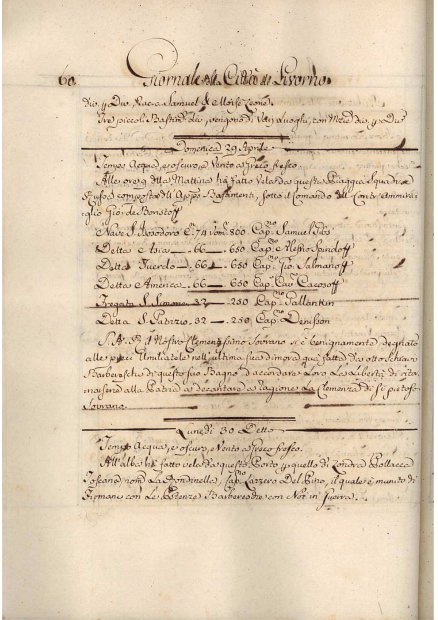 60 Giornale della Città di Livorno
dio, p Duo Racco Samuel & Moise Leone.
Tre piccoli Bastim. div. vengono di Varj Luoghi, con Mercd. div, p Dive
Domenica 29 Aprile
Tempo Acqua, e oscuro, Vento a Greco fresco.
Alle ore 9 della Mattina hà fatto Vela da questa Spiaggia Squadra
Russa composta dell' Appo Bastamenti, sotto il Comando del Contr' Ammira-
glio Gio: de Borstoff
Nave S. Teodoro C. 74 Vom. 800 Cap.no Samuel
Detta Asia — 66 — 650 Cap.no Alessio Spiridoff
Detta — 66 — 650 Cap.no Gio: Salmanoff
Detta America — 66 — 650 Cap. Cav. Cacosoff
Fregata S. Simone 32 — 250 Cap.no Pallankin
Detta S. Patrizio 32 — 250 Cap.no Denisson
S. A. R. il Nostro Clementissimo Sovrano si è benignamente degnato
alle preci Umiliatele nell' ultima sua dimora quì fatta da otto Schiavi
Barbereschi di questo suo Bagno d' accordare Loro La Libertà di ritor-
narsene alla Patria a decantare a ragione La Clemenza di sì pietoso
Sovrano.
Lunedì 30 Detto
Tempo Acqua, e oscuro, Vento a Greco fresco.
All' alba hà fatto vela da questo Porto p quello di Londra Pollacca
Toscana, nom.a La Rondinella, Cap.no Lazzero Del Pino, il quale è munito di
Firmano con Le Potenze Barbaresche con Noi in Guerra.